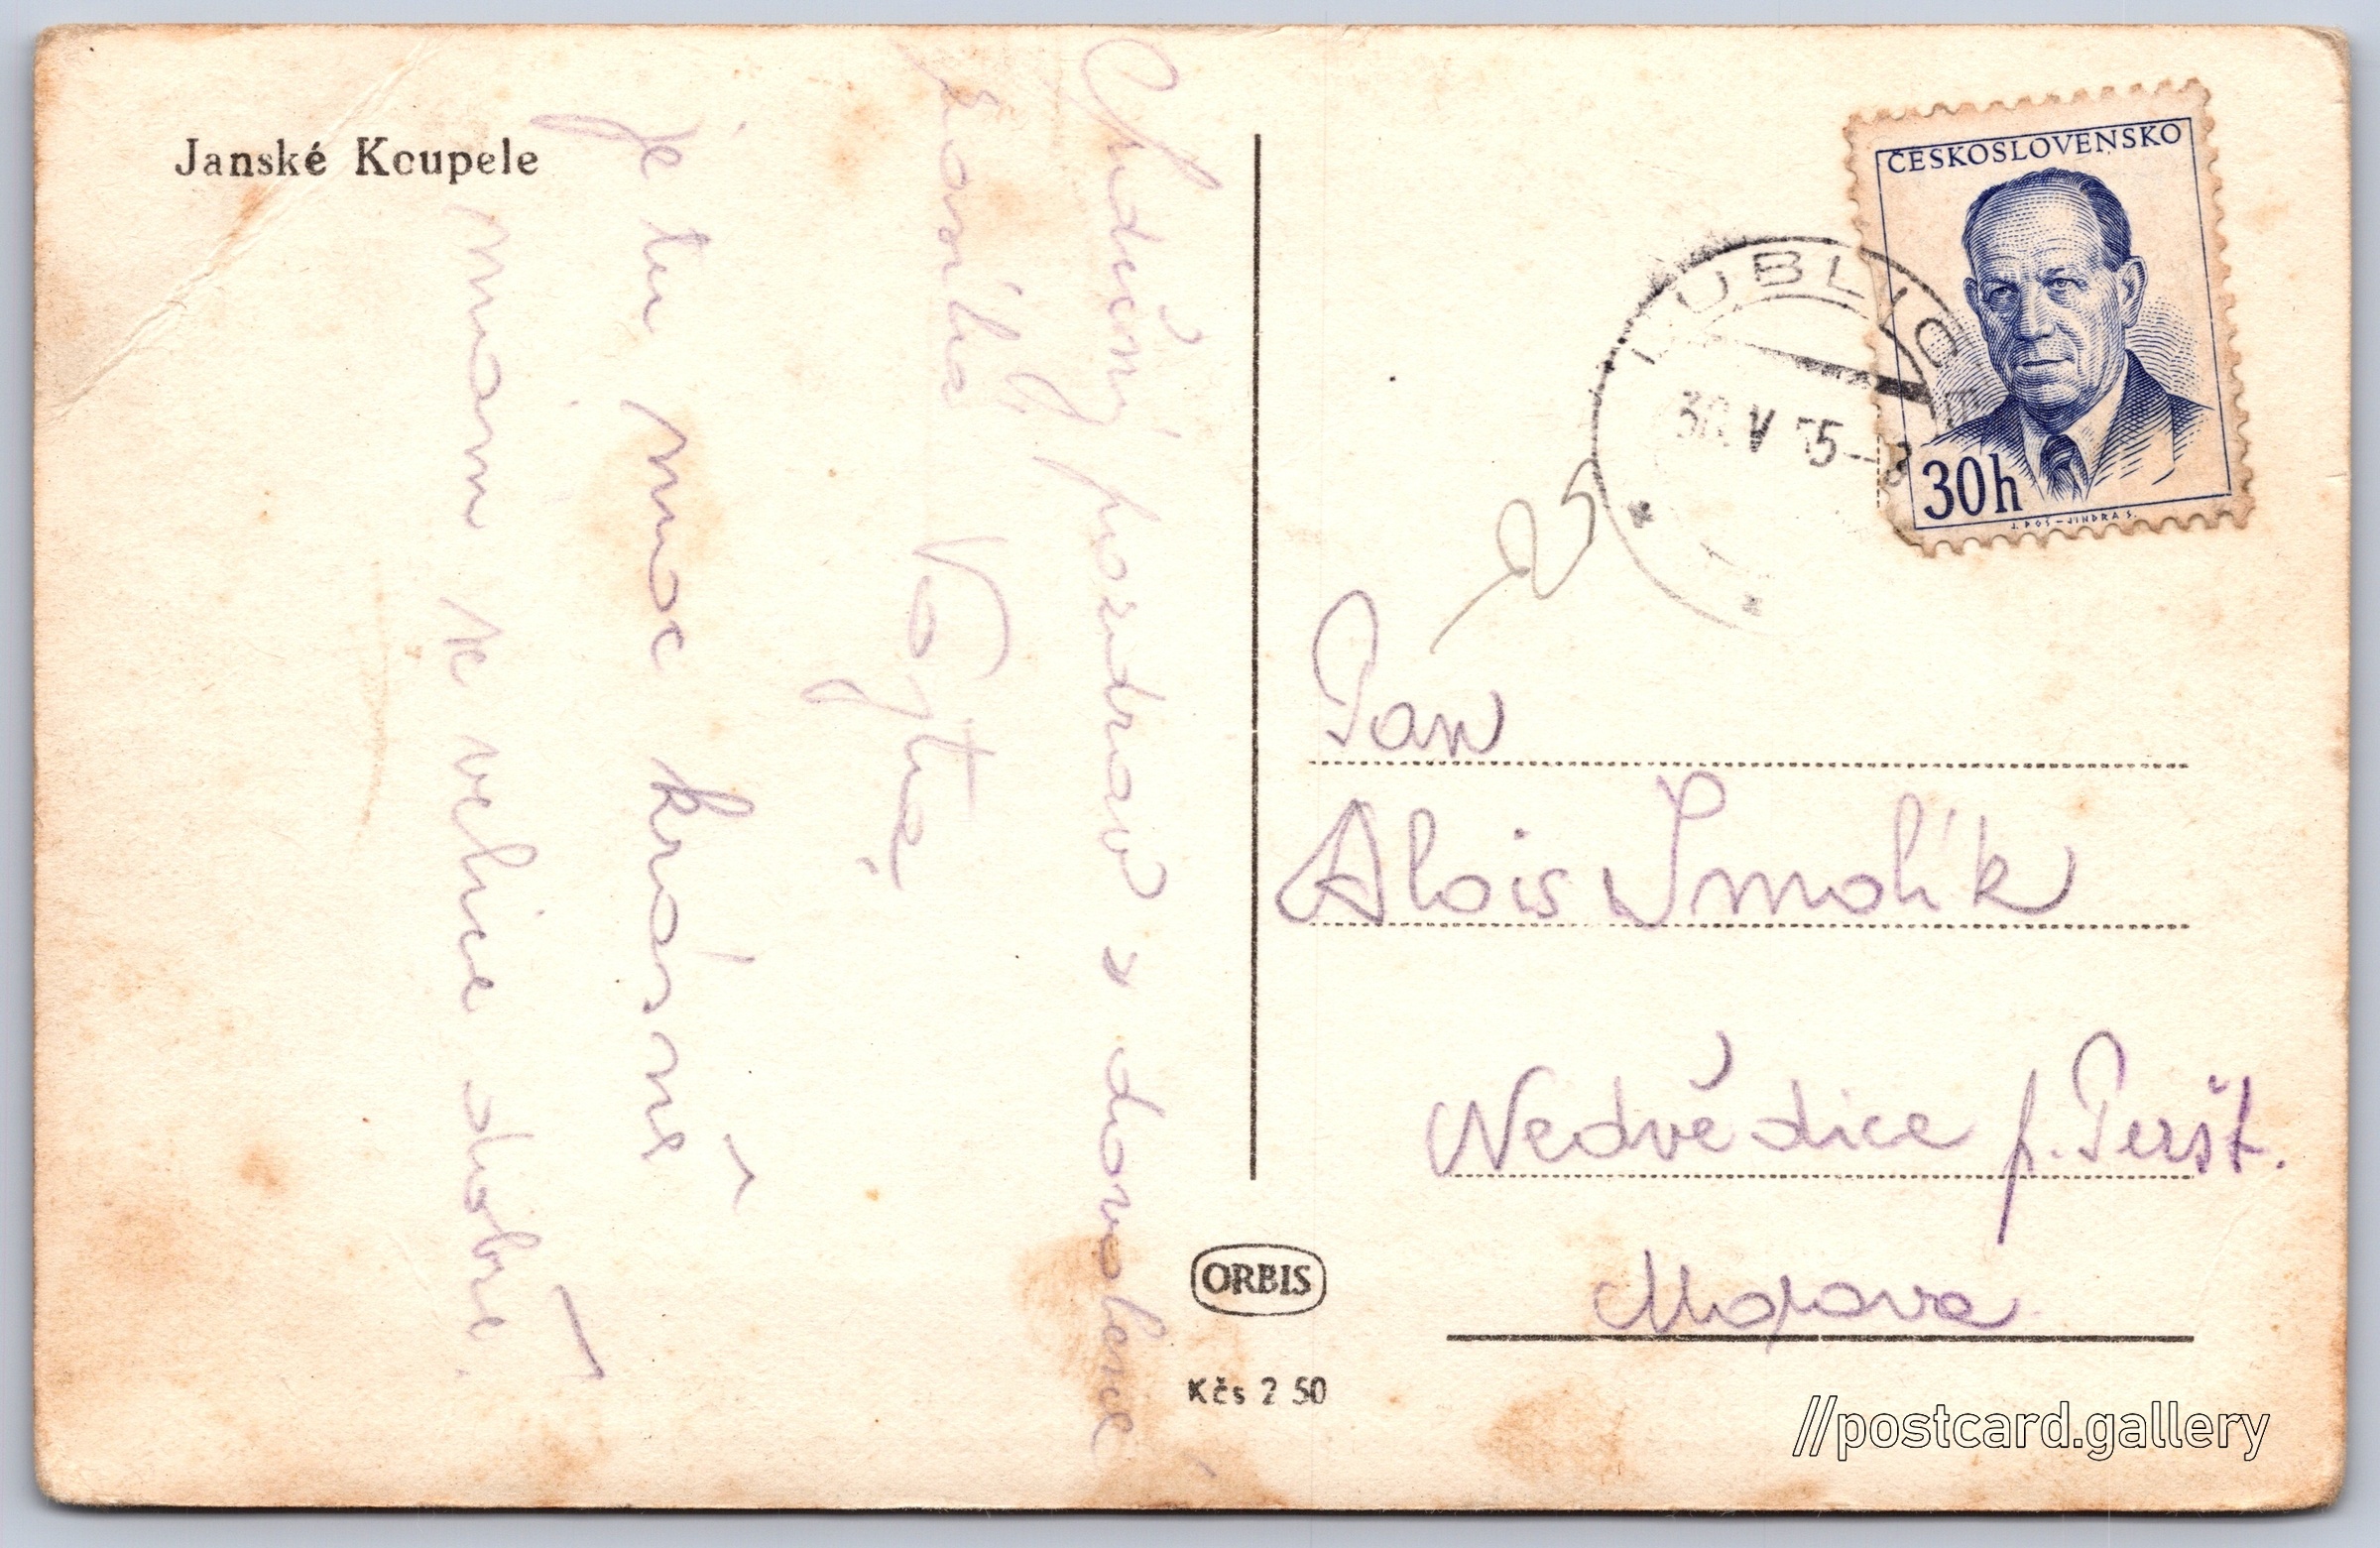 Janské Koupele
Srdečný pozdrav z dovolené
Vojta
je tu moc krásně
mám
velice dobře.
ČESKOSLOVENSKO
30h
J. DOS-JINDRA S.
LUBLICE
30.V 55-8
25
Pan
Alois Smolík
Nedvědice p. Peršt.
Morava
ORBIS
Kčs 2 50
//postcard.gallery